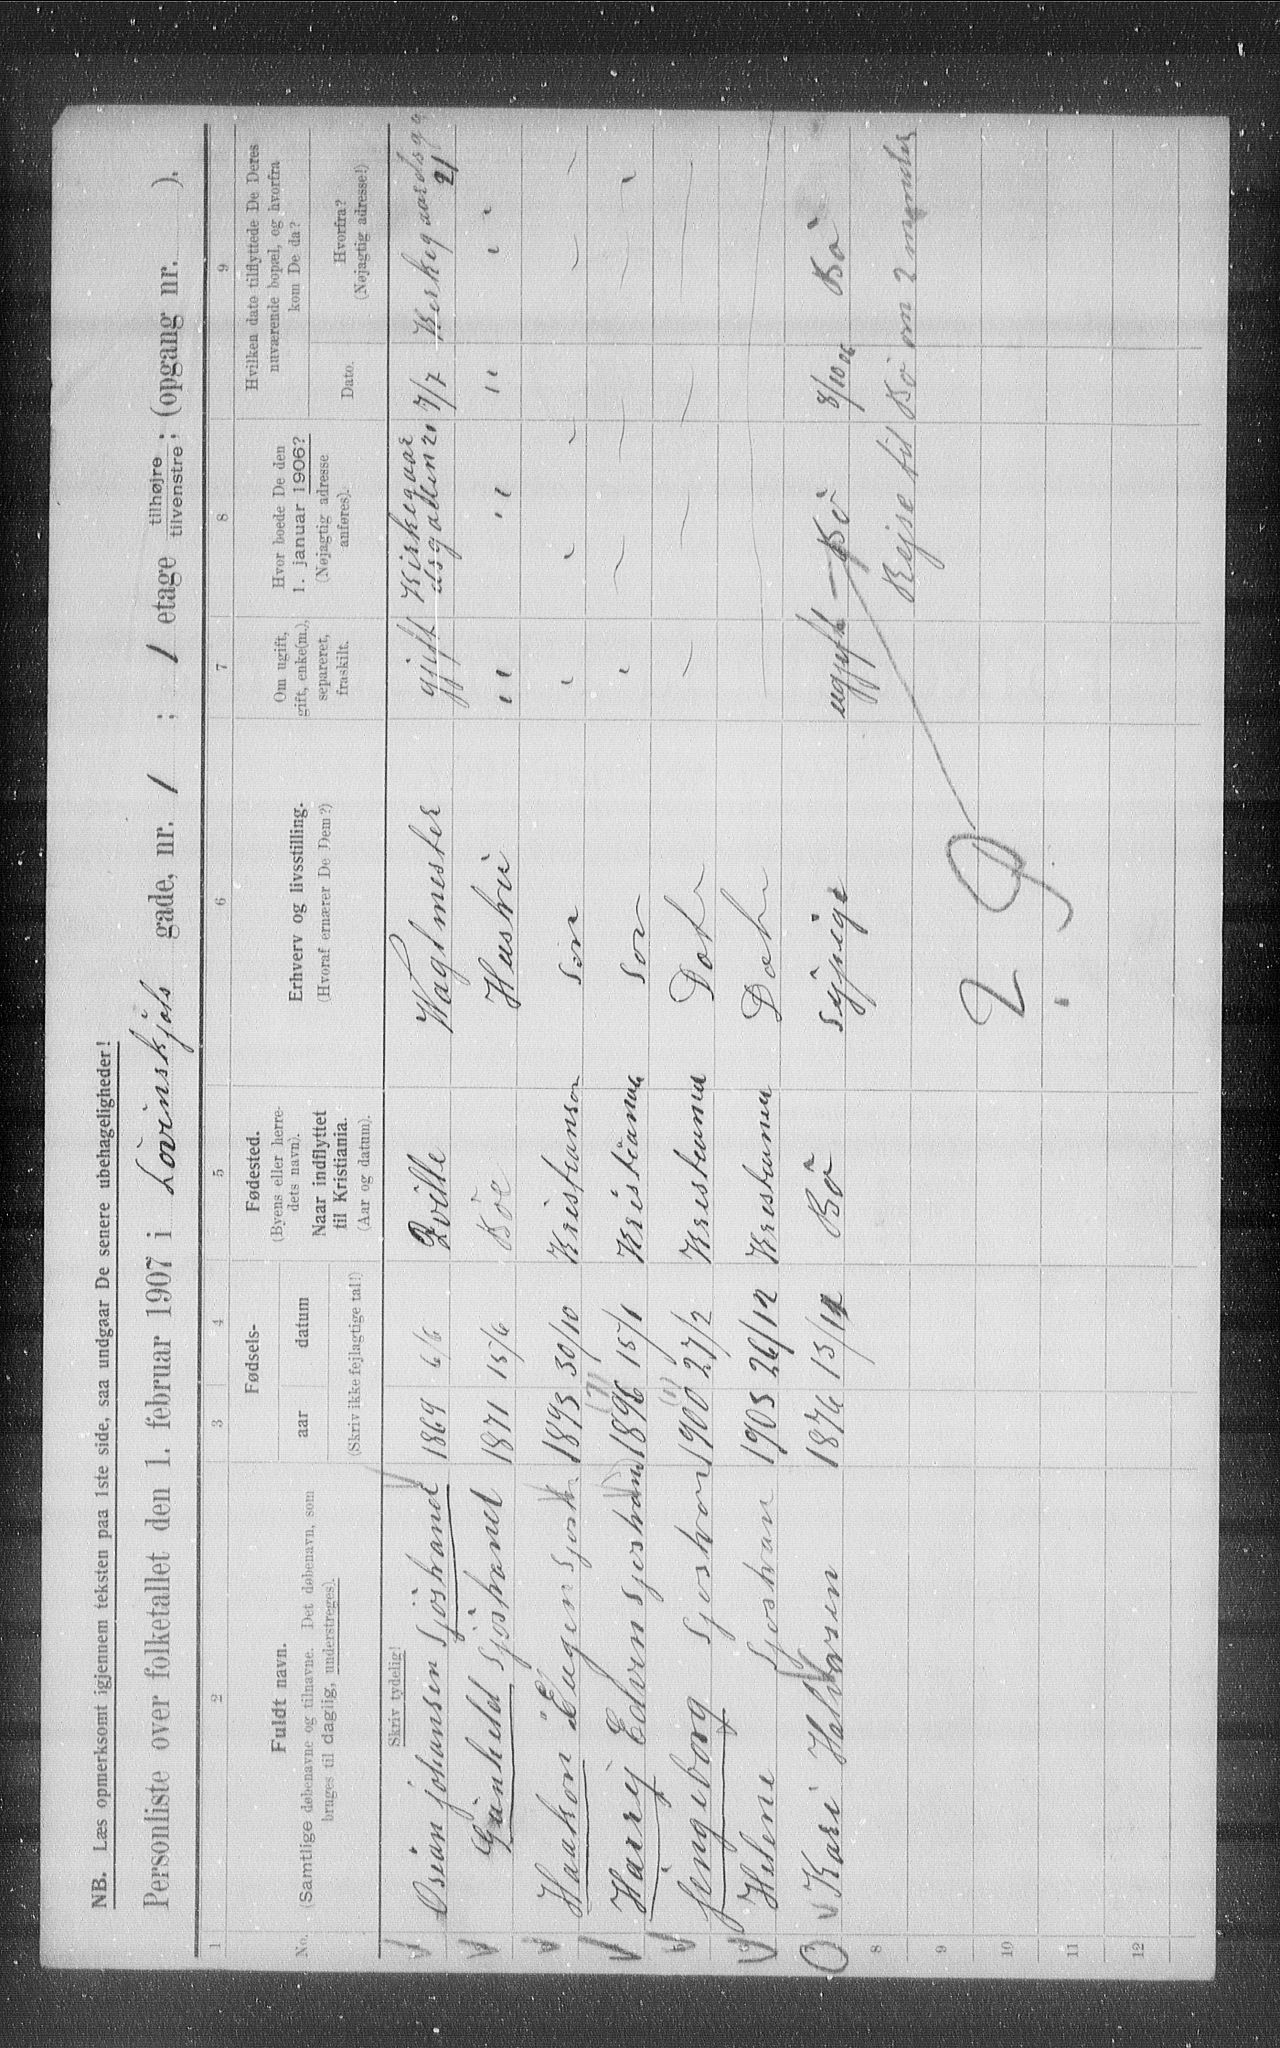 NB. Læs opmerksomt igjennem teksten paa 1ste side, saa undgaar De senere ubehageligheder!
Personliste over folketallet den 1. februar 1907 i Lövinskjols gade, nr. 1 ; 1 etage tilhøjre / tilvenstre; (opgang nr. ).
1 2 3 4 5 6 7 8 9
No. Fuldt navn. (Samtlige døbenavne og tilnavne. Det døbenavn, som bruges til daglig, understreges). Fødsels- aar datum (Skriv ikke fejlagtige tal!) Fødested. (Byens eller herredets navn). Naar indflyttet til Kristiania. (Aar og datum). Erhverv og livsstilling. (Hvoraf ernærer De Dem?) Om ugift, gift, enke(m.), separeret, fraskilt. Hvor boede De den 1. januar 1906? (Nøjagtig adresse anføres). Hvilken dato tilflyttede De Deres nuværende bopæl, og hvorfra kom De da? Dato. Hvorfra? (Nøjagtig adresse!)
Skriv tydelig!
Osian johansen Sjöstrand 1869 6/6 Qville Vagtmester gjift Kirkegaardsgatten 21 7/7 Kirkegaardsga 21
Günhild Sjöstrand 1871 15/6 Böe Hustrü " " " "
Haakon Eugen Sjostr. 1893 30/10 Kristianson Sön
Harrÿ Edvin Sjostrand 1896 15/1 Kristiania Son
Jengeborg Sjostran 1900 27/2 Kristiania Dotr
Helene Sjostran 1903 26/12 Kristiania Dotr
Kari Halvorsen 1876 13/12 Bö sÿpige ugjift Bö 8/10 06 Bö
8 Rejse til Bö om 2 maaneder
9
10
11
12